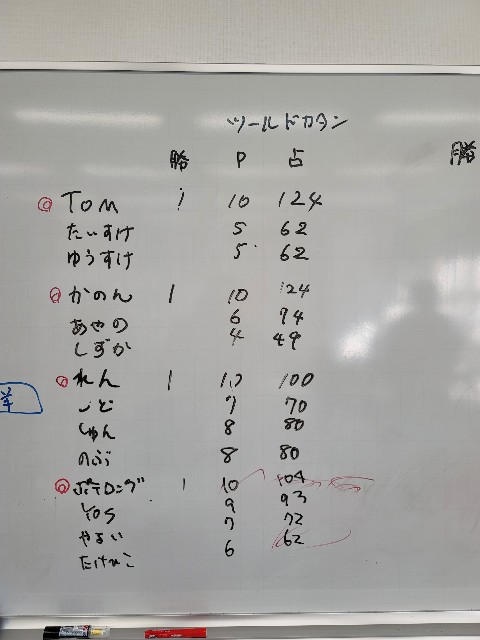 ツールドカタン
勝 P 占
勝
TOM 1 10 124
たいすけ 5 62
ゆうすけ 5 62
かのん 1 10 124
あやの 6 74
しずか 4 49
れん 1 10 100
羊
いど 7 70
しゅん 8 80
のぶ 8 80
ポテロング 1 10 104
YOS 9 93
やるい 7 72
6 62